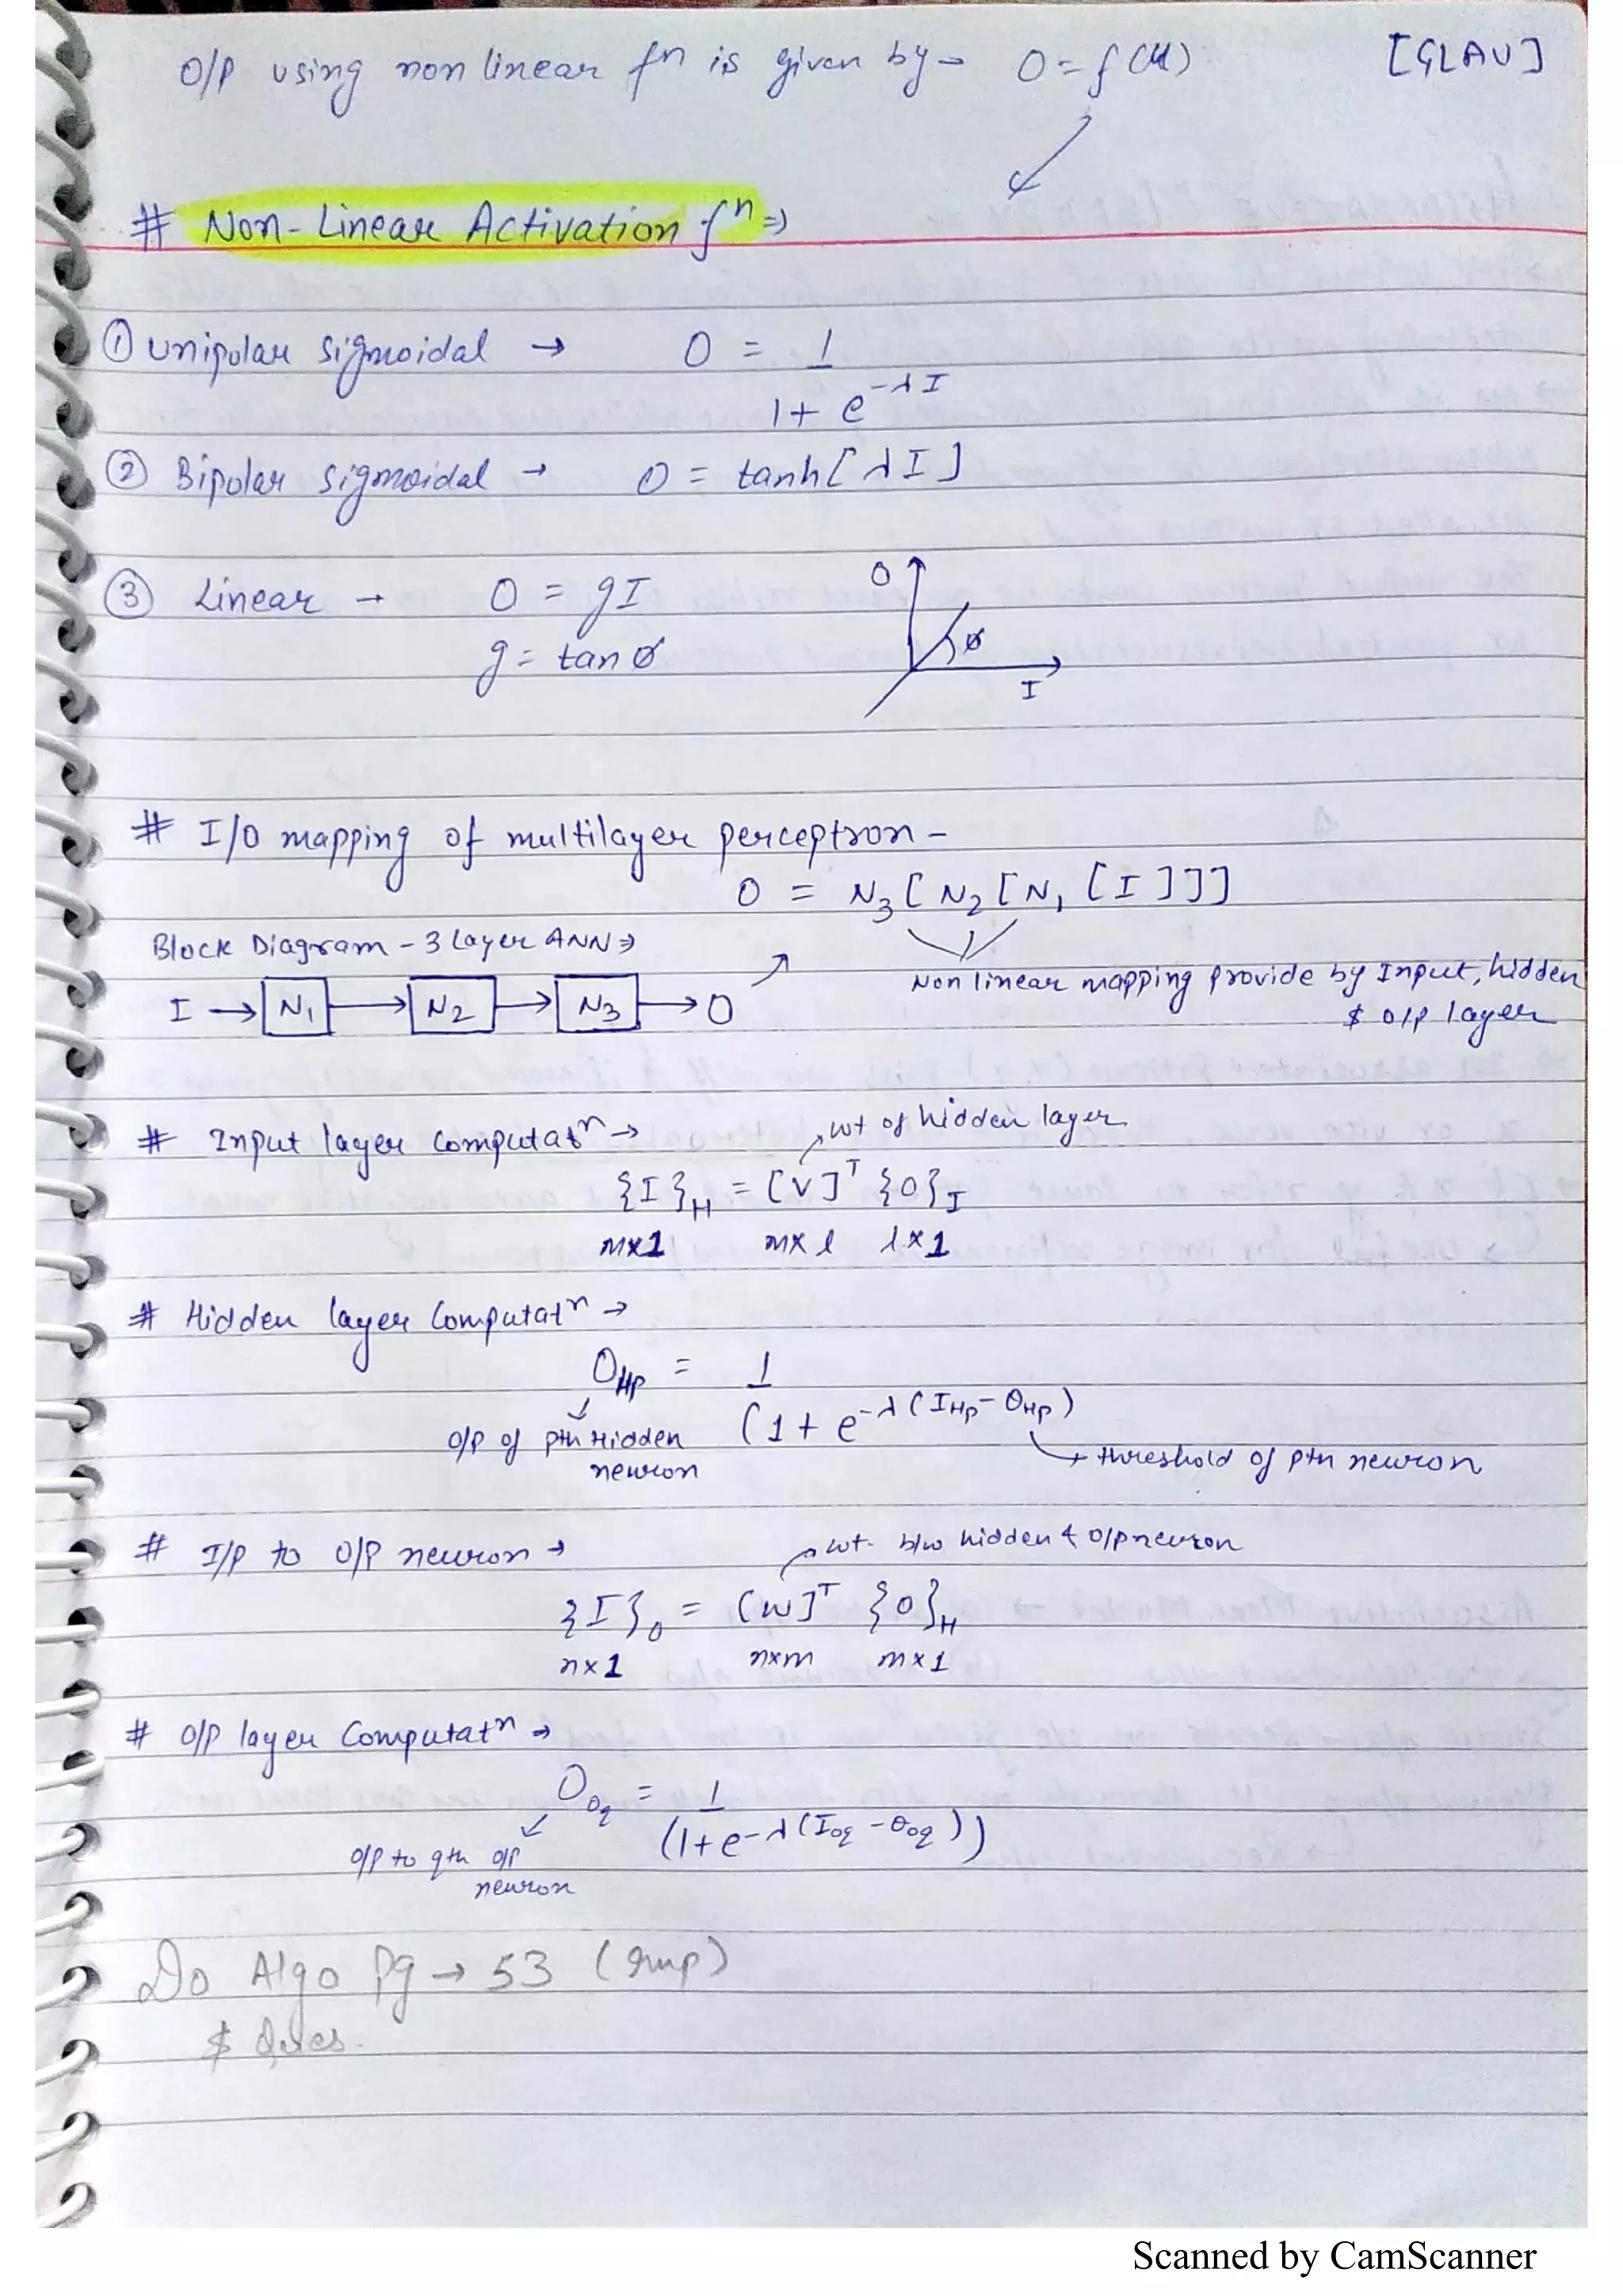 O/P using non linear fn is given by → O = f(U) [GLAU]
# Non-Linear Activation fn ⇒
① Unipolar sigmoidal → O = 1
1 + e^-λI
② Bipolar sigmoidal → O = tanh[λI]
③ Linear → O = gI
g = tan ø
O
ø
I
# I/O mapping of multilayer perceptron -
O = N3 [ N2 [ N1 [ I ] ] ]
Block Diagram - 3 layer ANN ⇒
Non linear mapping provide by Input, hidden
& O/P layer
I → N1 → N2 → N3 → O
# Input layer computatn →
wt of hidden layer
{I}H = [V]T {O}I
m×1 m×l l×1
# Hidden layer Computatn →
OHp = 1
(1 + e^-λ(IHp - θHp)
O/P of pth Hidden
neuron
threshold of pth neuron
# I/P to O/P neuron →
wt. b/w hidden & O/P neuron
{I}O = [W]T {O}H
n×1 n×m m×1
# O/P layer Computatn ⇒
OOq = 1
(1+e^-λ(IOq - θOq))
O/P to qth O/P
neuron
Do Algo Pg → 53 (Imp)
& Ques.
Scanned by CamScanner